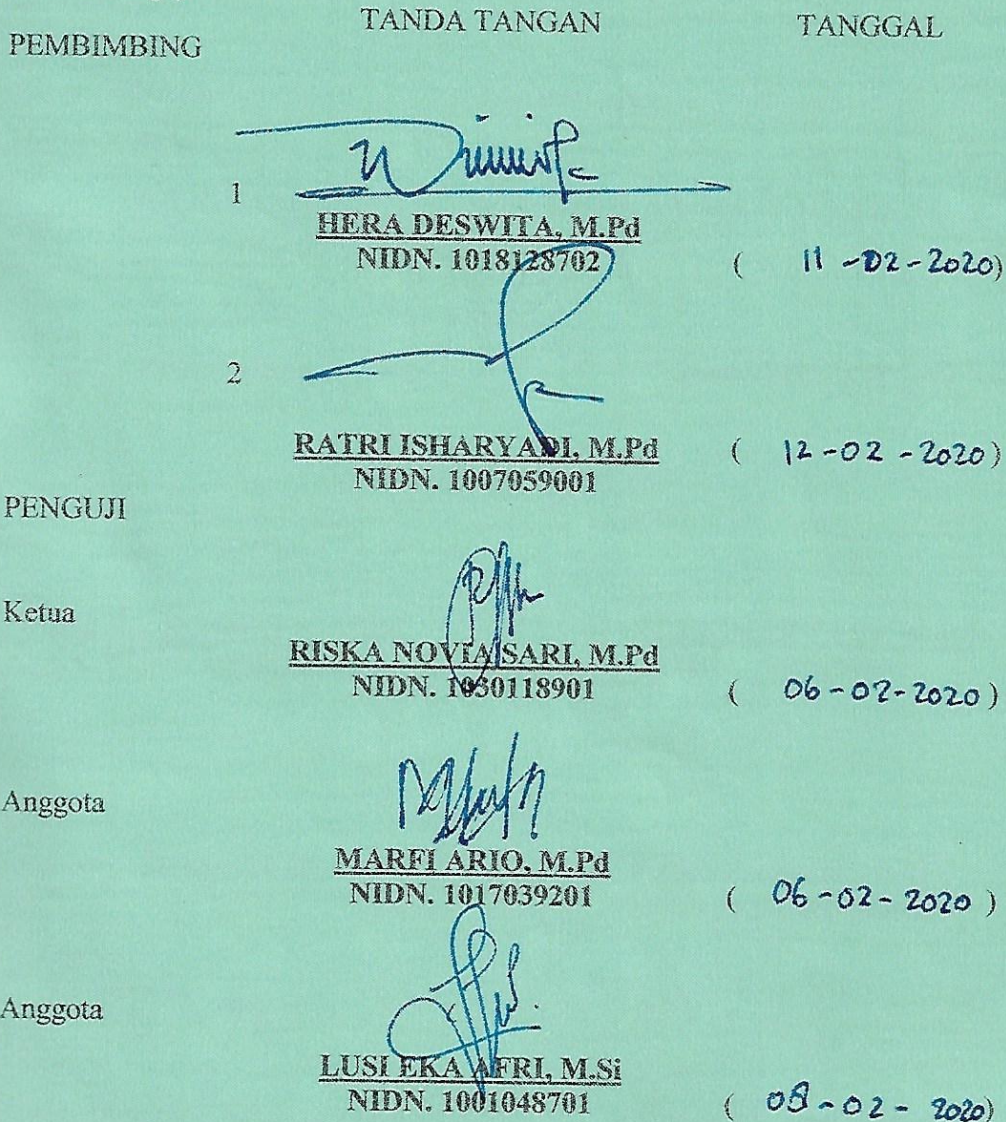 TANDA TANGAN TANGGAL
PEMBIMBING
1
HERA DESWITA, M.Pd
NIDN. 1018128702 ( 11-02-2020)
2
RATRI ISHARYADI, M.Pd ( 12-02-2020)
NIDN. 1007059001
PENGUJI
Ketua
RISKA NOVIA SARI, M.Pd
NIDN. 1030118901 ( 06-02-2020)
Anggota
MARFI ARIO, M.Pd
NIDN. 1017039201 ( 06-02-2020 )
Anggota
LUSI EKA AFRI, M.Si
NIDN. 1001048701 ( -02-2020)